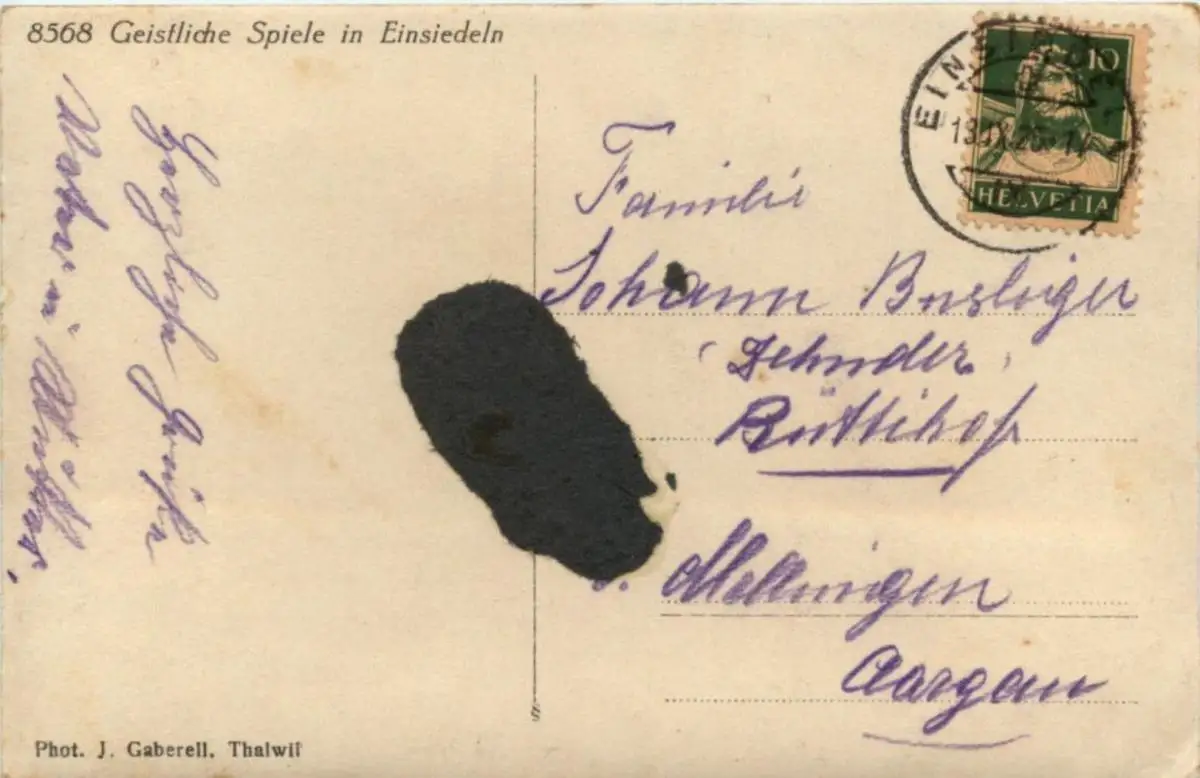 8568 Geistliche Spiele in Einsiedeln
Herzliche Grüße
10
HELVETIA
Familie
Johann Busliger
(Zehnder)
Büttihof
Mellingen
Aargau
Phot. J. Gaberell, Thalwil